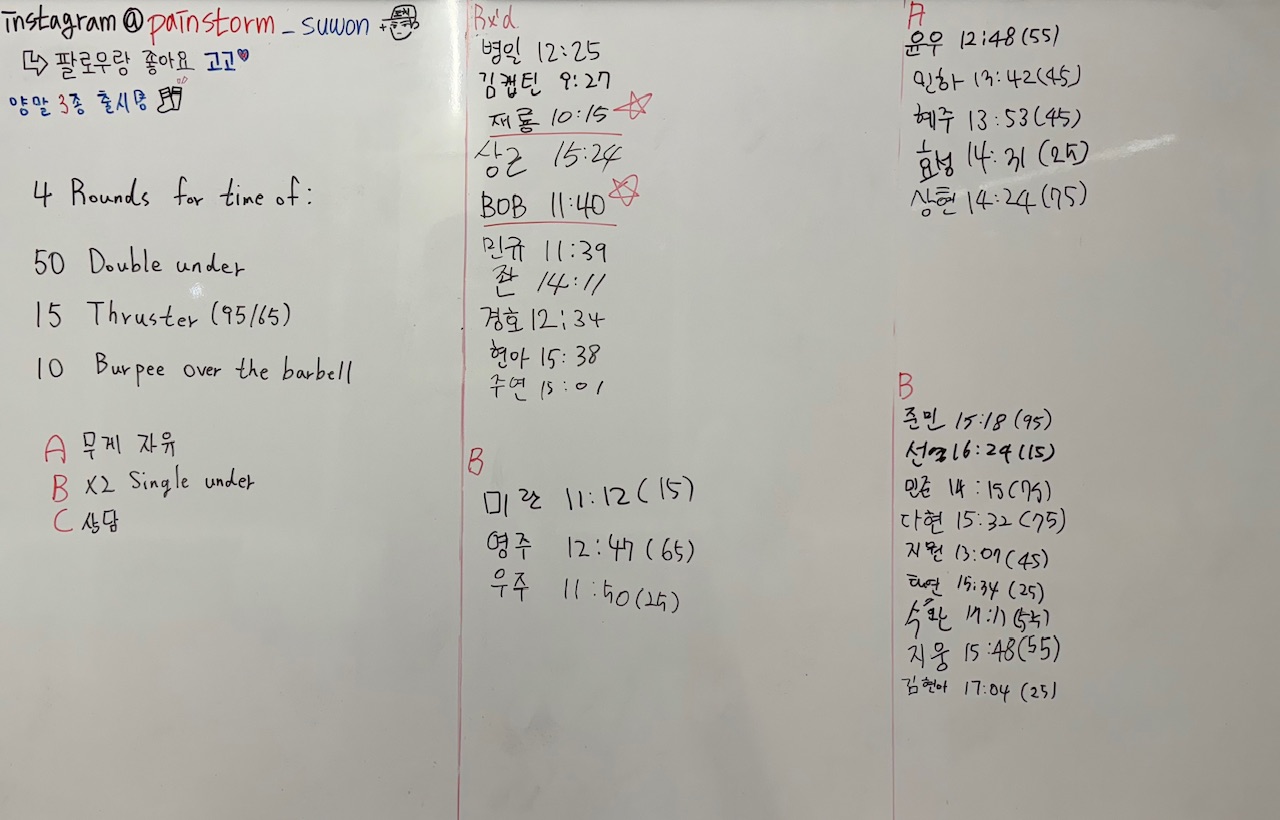 instagram@painstorm_suwon +
팔로우랑 좋아요 고고
양말 3종 출시중
4 Rounds for time of:
50 Double under
15 Thruster (95/65)
10 Burpee over the barbell
A 무게 자유
B X2 Single under
C 상담
Rx'd
병일 12:25
김캡틴 9:27
재룡 10:15
상근 15:24
BOB 11:40
민규 11:39
좐 14:11
경호 12:34
현아 15:38
주연 15:01
B
미란 11:12 (15)
영주 12:47 (65)
우주 11:50 (25)
A
윤우 12:48 (55)
민하 13:42 (45)
혜주 13:53 (45)
효성 14:31 (25)
상현 14:24 (75)
B
준민 15:18 (95)
16:24 (15)
민준 14:15 (75)
다현 15:32 (75)
지원 13:07 (45)
태연 15:34 (25)
수환 (55)
지웅 15:48 (55)
김현아 17:04 (25)